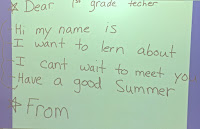 Dear 1st grade techer
Hi my name is
I want to lern about
I cant wait to meet yo
-Have a good Summer
From